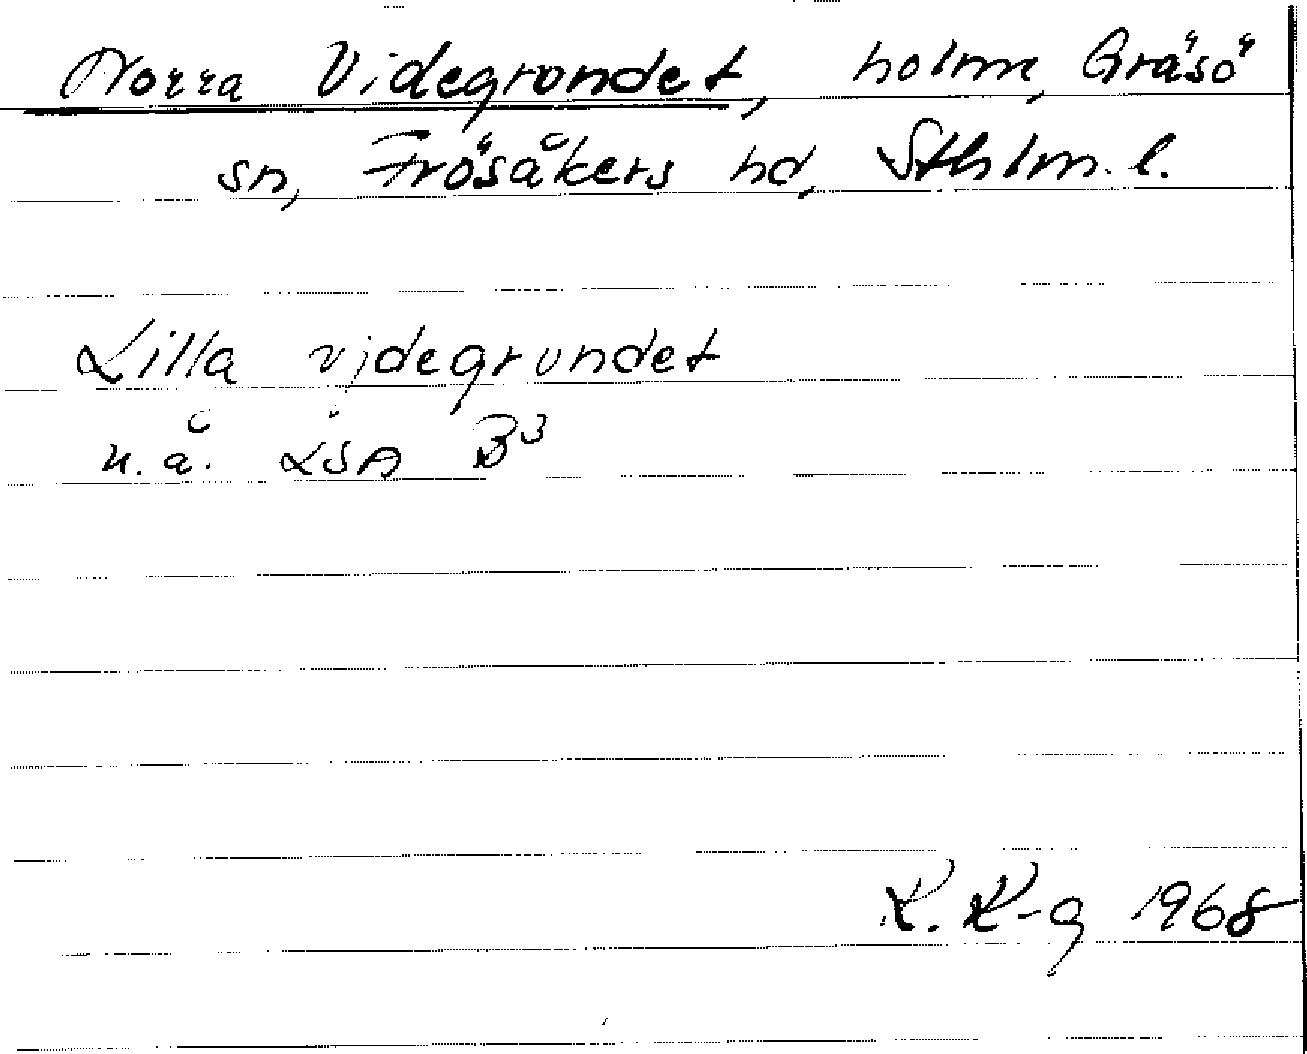 Norra Videgrundet, holme, Gräsö
sn, Frösåkers hd, Sthlm. l.
Lilla videgrundet
u. å. LSA B3
K. K-g 1968